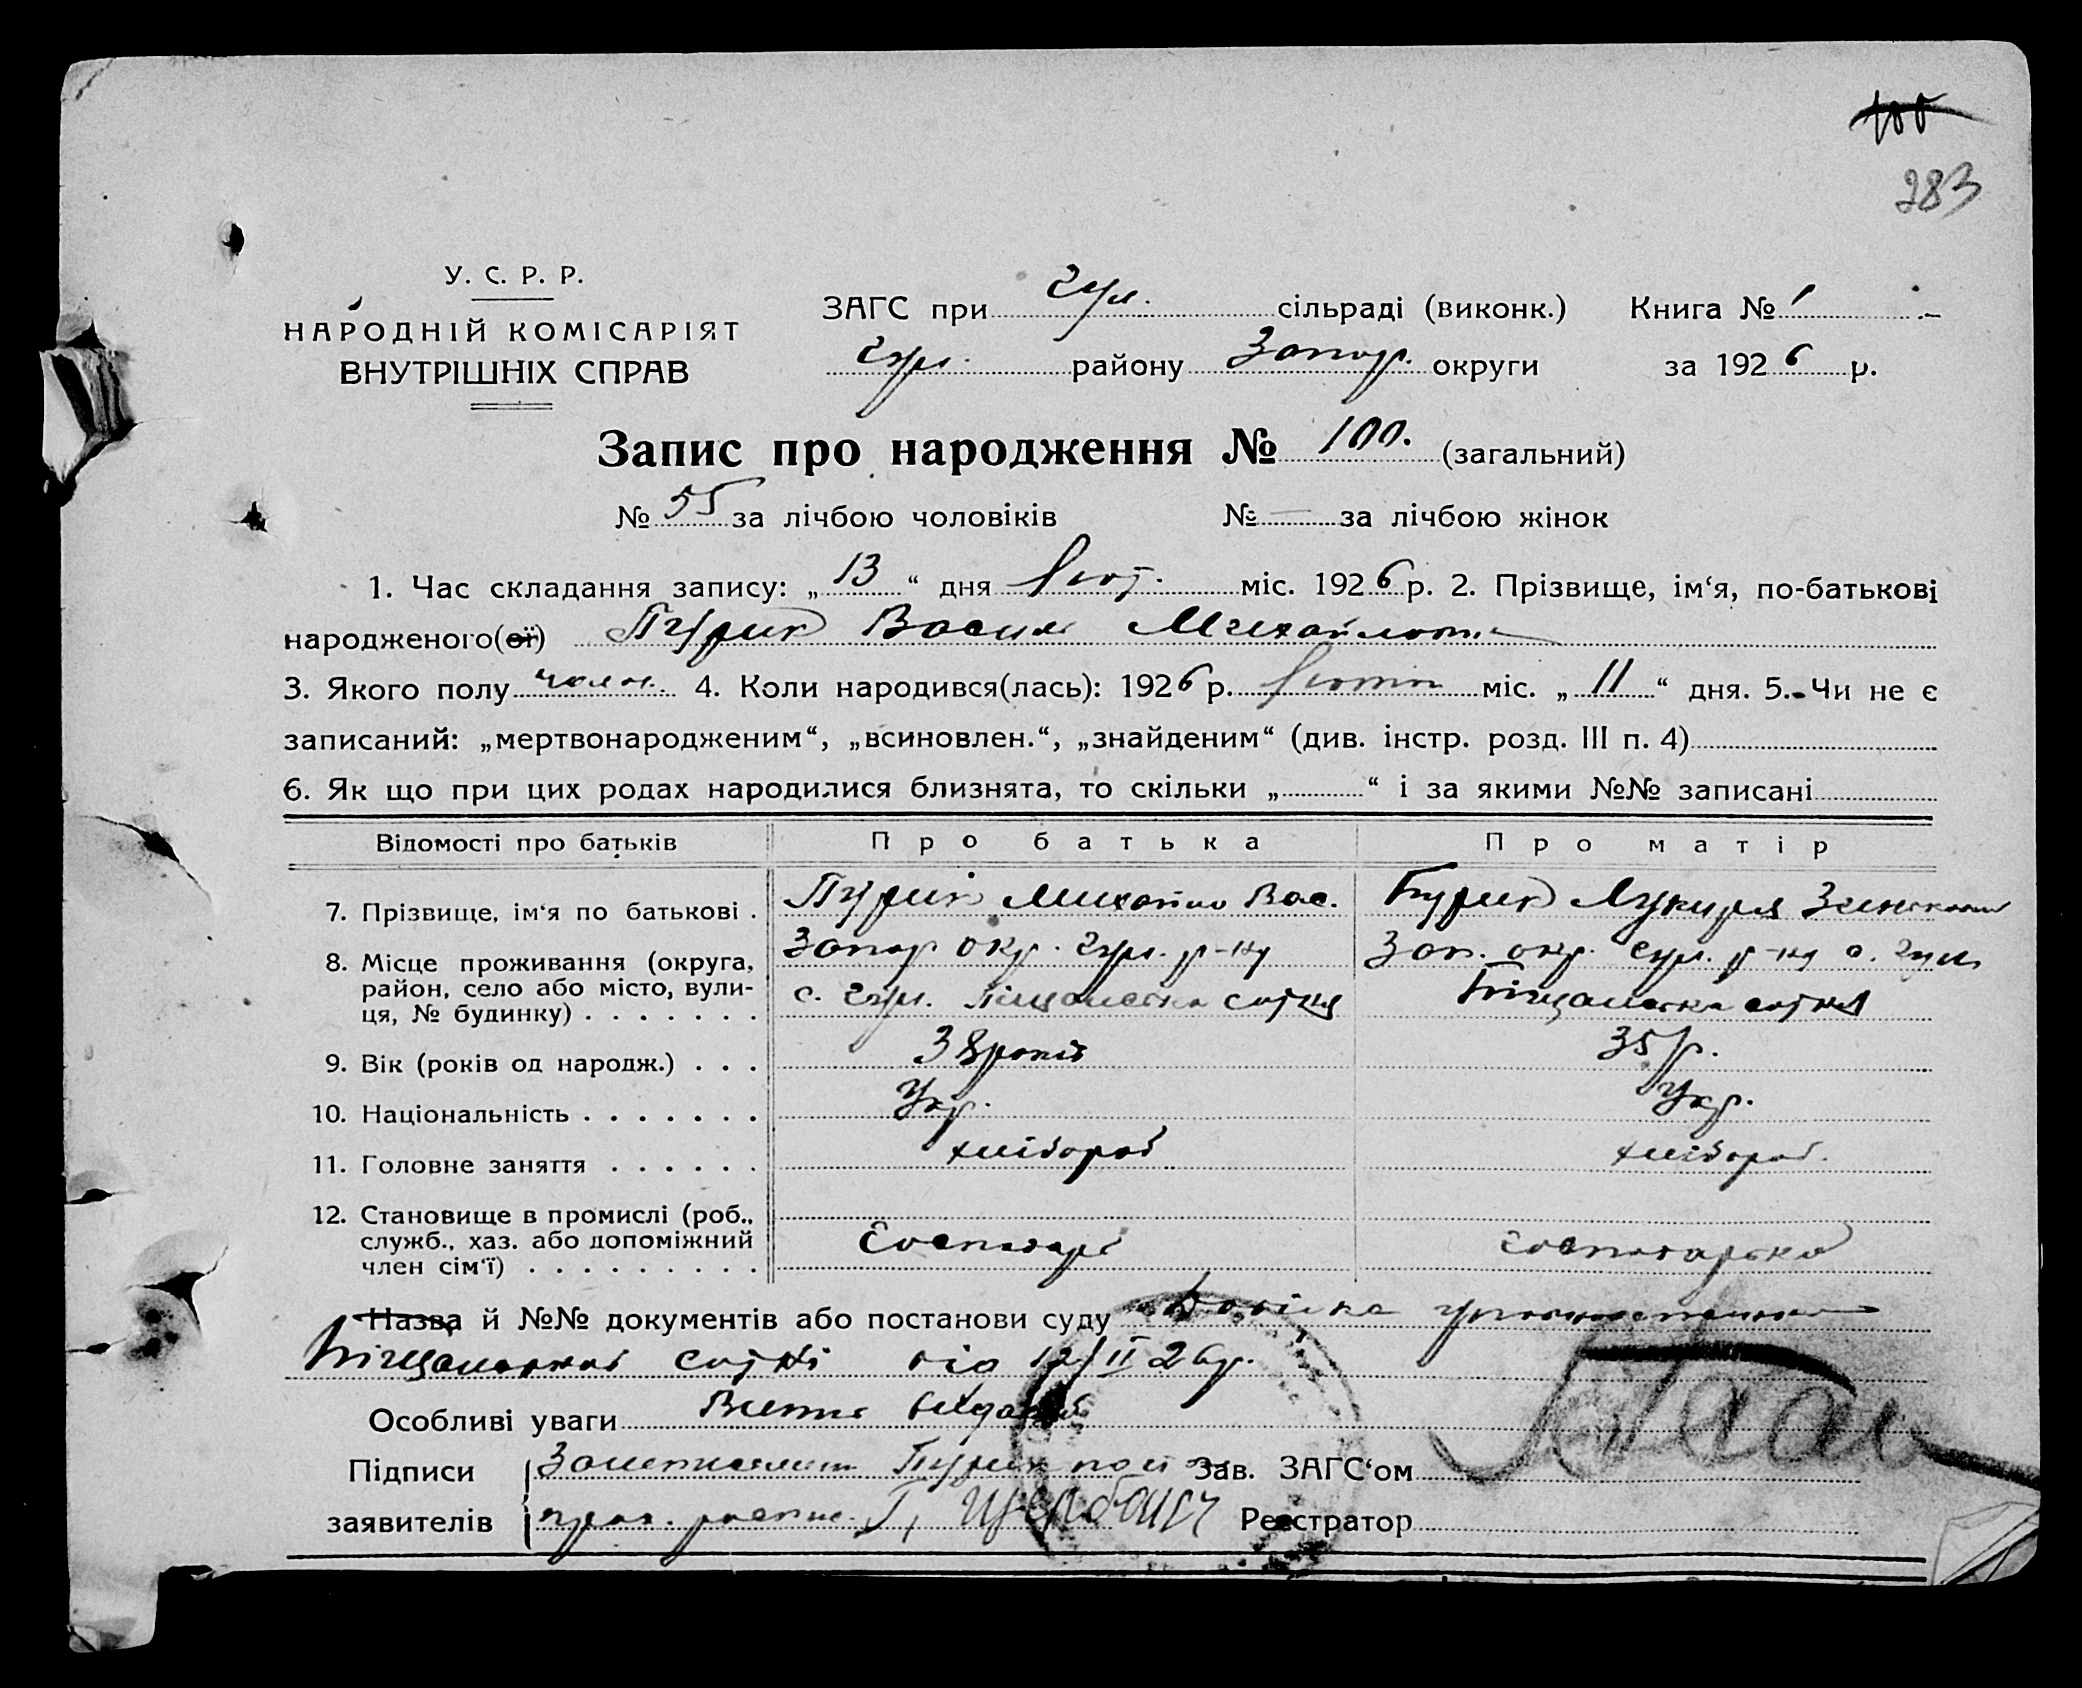 100
283
У. С. Р. Р.
НАРОДНІЙ КОМІСАРІЯТ
ВНУТРІШНІХ СПРАВ
ЗАГС при Гул. сільраді (виконк.) Книга № 1
Гул. району Запор. округи за 1926 р.
Запис про народження № 100. (загальний)
№ 55 за лічбою чоловіків № — за лічбою жінок
1. Час складання запису: „13“ дня Лют. міс. 1926 р. 2. Прізвище, ім‘я, по-батькові
народженого(ої) Пурик Василь Михайлович
3. Якого полу чолов. 4. Коли народився(лась): 1926 р. Лютня міс. „11“ дня. 5. Чи не є
записаний: „мертвонародженим“, „всиновлен.“, „знайденим“ (див. інстр. розд. III п. 4)
6. Як що при цих родах народилися близнята, то скільки „ “ і за якими №№ записані
Відомості про батьків Про батька Про матір
7. Прізвище, ім‘я по батькові . Пурик Михайло Вас. Пурик Лукиря
8. Місце проживання (округа, район, село або місто, вулиця, № будинку) . . . . . . . Запор окр. Гул. р-ну Зап. окр. Гул. р-ну с. Гул.
с. Гул. Піщанська сотня Піщанська сотня
9. Вік (років од народж.) . . . 38 років 35 р.
10. Національність . . . . . . . Укр. Укр.
11. Головне заняття . . . . . . хлібороб хлібороб.
12. Становище в промислі (роб., служб., хаз. або допоміжний член сім‘ї) . . . . . . . . . Господарь господарька
Назва й №№ документів або постанови суду Довідка уповноваженого
Піщанської сотні від 12/II 26 р.
Особливі уваги Витяг видано
Підписи Пурик Зав. ЗАГС‘ом
заявителів Реєстратор